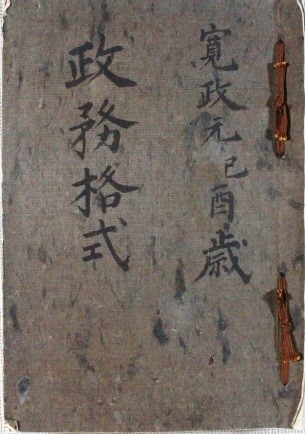 寛政元己酉歳
政務格式